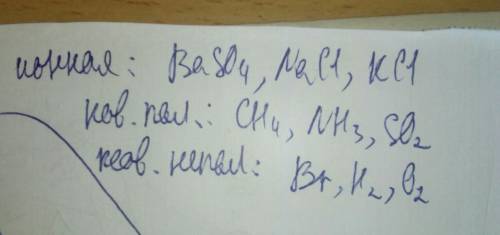 ионная: BaSO4, NaCl, KCl
ков. пол.: CH4, NH3, SO2
ков. непол: Br, H2, O2